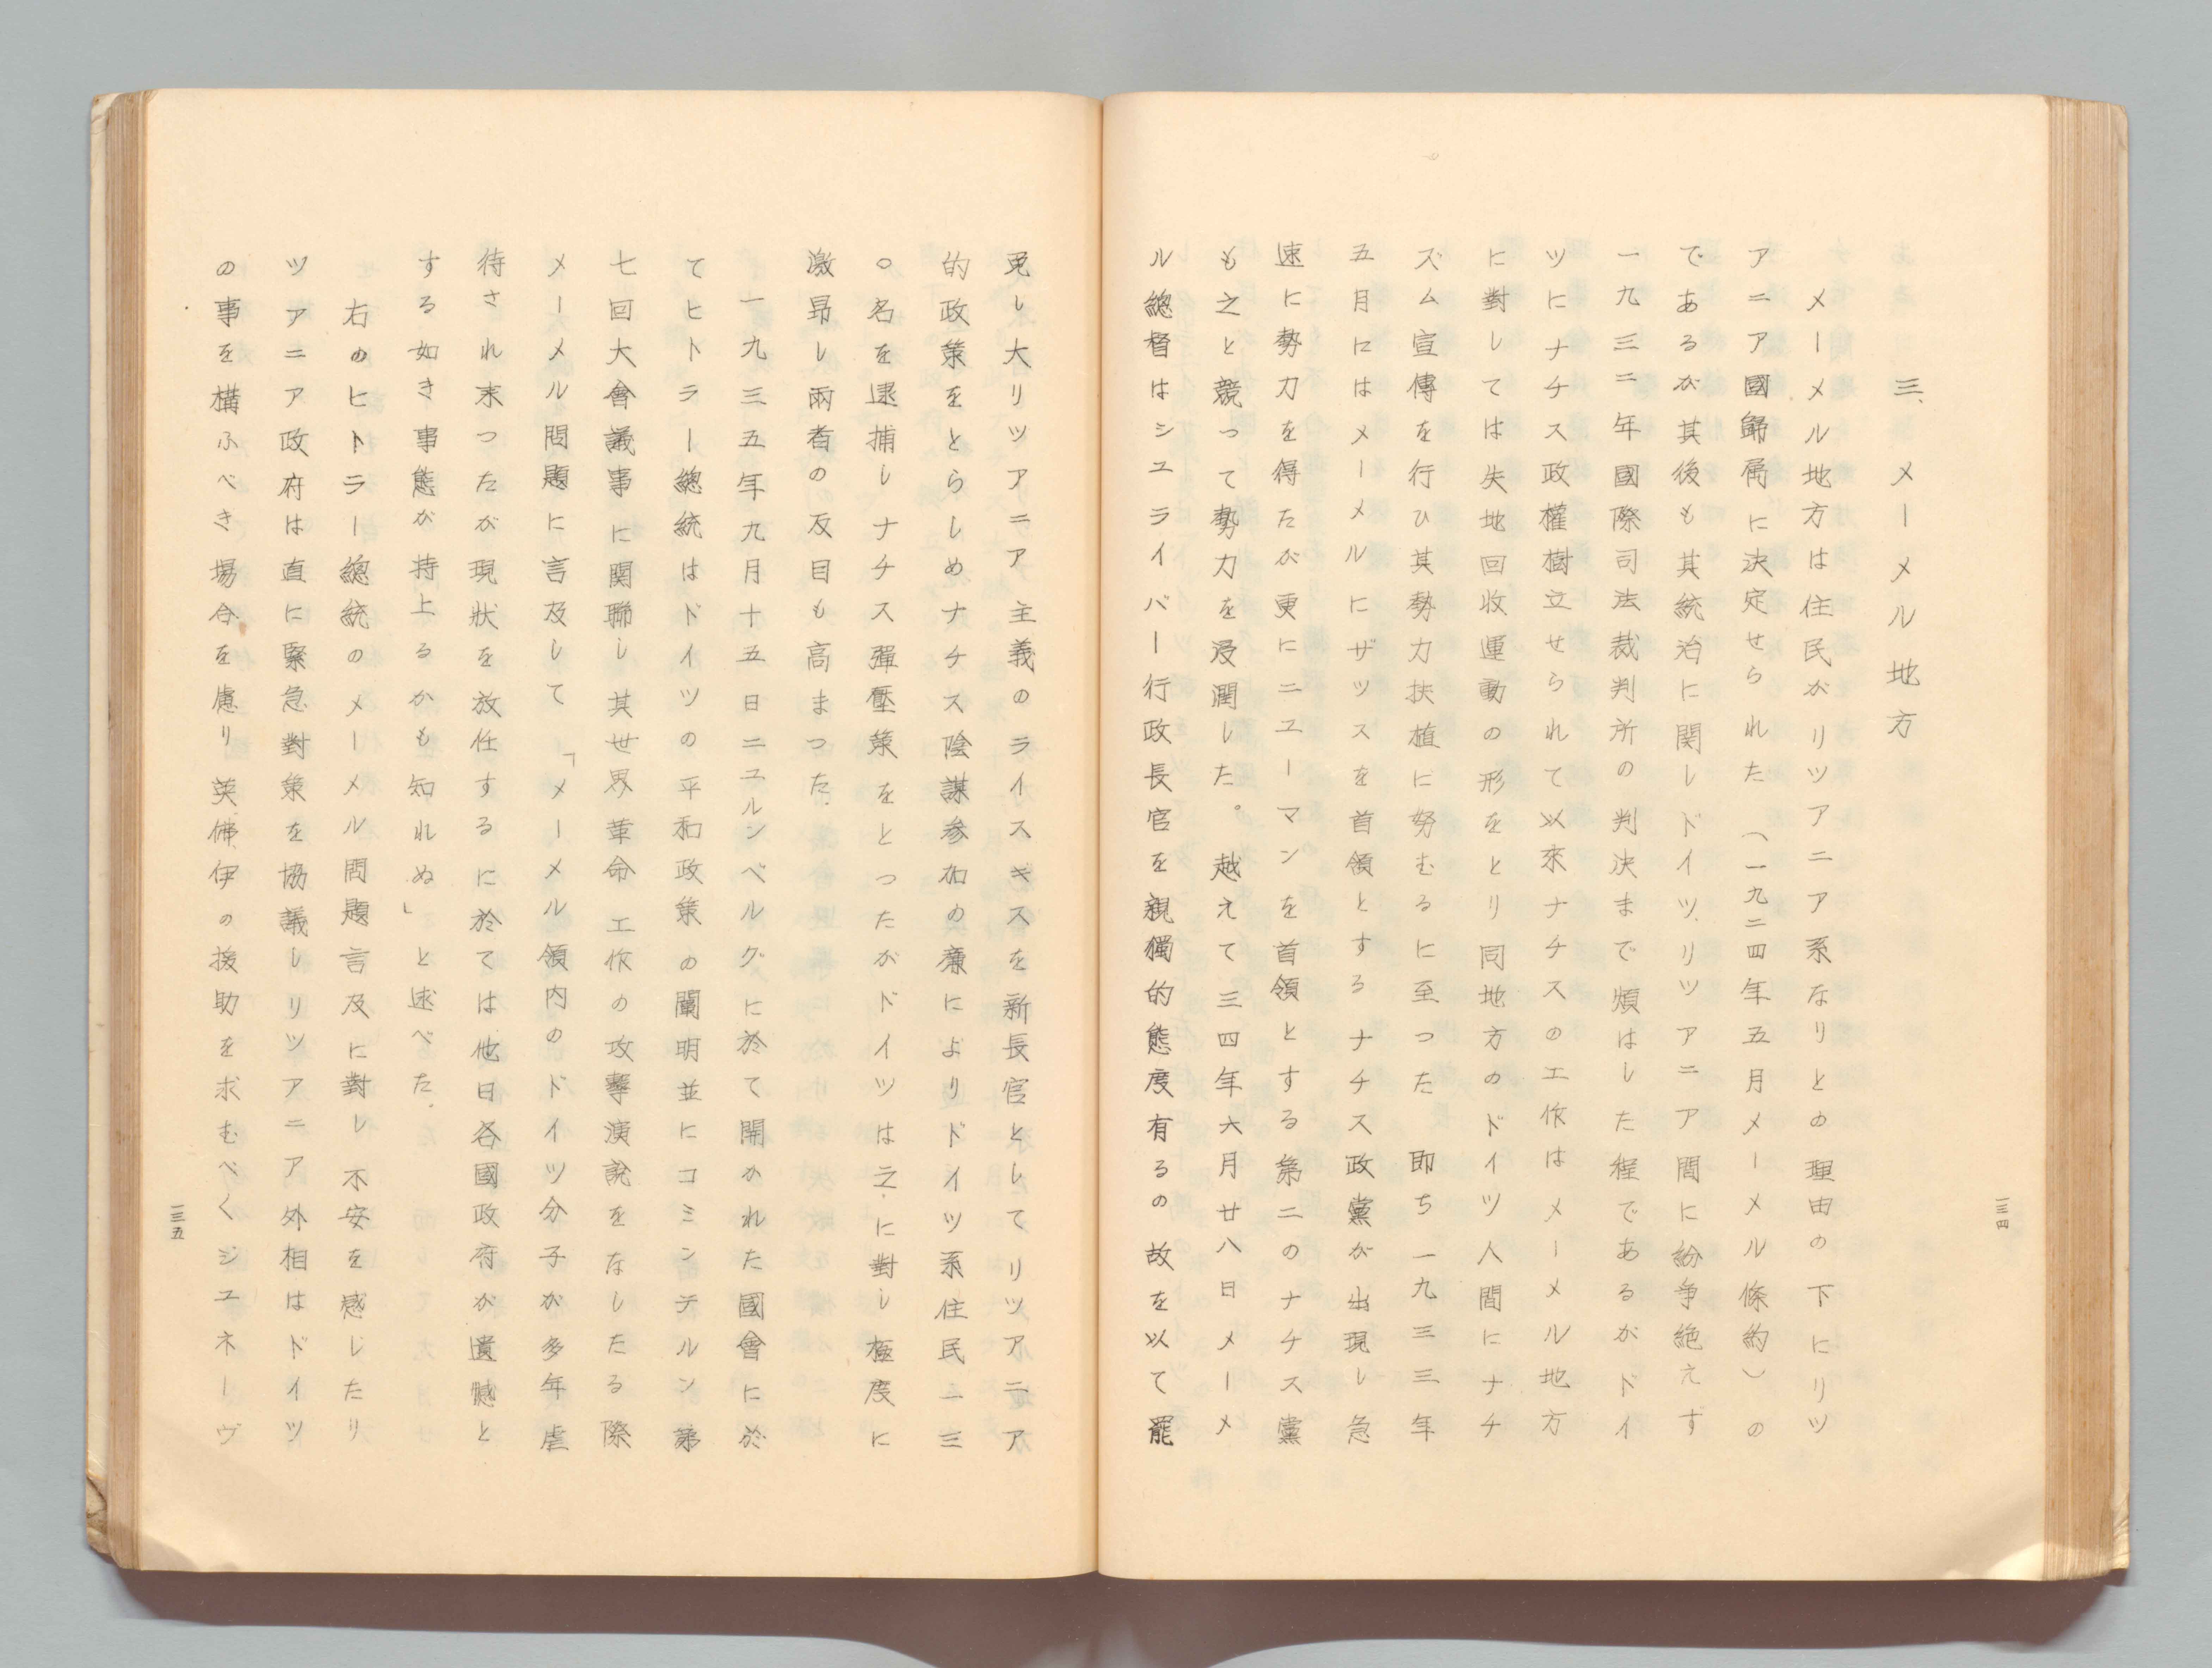 三、メーメル地方
メーメル地方は住民がリツアニア系なりとの理由の下にリツ
アニア國歸屬に決定せられた（一九二四年五月メーメル條約）の
であるが其後も其統治に関しドイツ、リツアニア間に紛争絶えず
一九三二年國際司法裁判所の判決まで煩はした程であるがドイ
ツにナチス政權樹立せられて以來ナチスの工作はメーメル地方
に對しては失地回收運動の形をとり同地方のドイツ人間にナチ
ズム宣傳を行ひ其勢力扶植に努むるに至つた　即ち一九三三年
五月にはメーメルにザッスを首領とするナチス政黨が出現し急
速に勢力を得たが更にニユーマンを首領とする第二のナチス黨
も之と競って勢力を浸潤した。越えて三四年六月廿八日メーメ
ル總督はシユライバー行政長官を親獨的態度有るの故を以て罷
一三四
免し大リツアニア主義のライスギスを新長官としてリツアニア
的政策をとらしめナチス陰謀参加の廉によりドイツ系住民二三
〇名を逮捕しナチス彈壓策をとつたがドイツは之に對し極度に
激昂し兩者の反目も高まつた.
一九三五年九月十五日ニユルンベルグに於て開かれた國會に於
てヒトラー總統はドイツの平和政策の闡明並にコミンテルン第
七回大會議事に関聯し其世界革命工作の攻撃演說をなしたる際
メーメル問題に言及して「メーメル領内のドイツ分子が多年虐
待され来つたが現狀を放任するに於ては他日各國政府が遺憾と
する如き事態が持上るかも知れぬ」と述べた.
右のヒトラー總統のメーメル問題言及に對し不安を感じたリ
ツアニア政府は直に緊急對策を協議しリツアニア外相はドイツ
の事を構ふべき場合を慮り英佛伊の援助を求むべくジユネーヴ
一三五